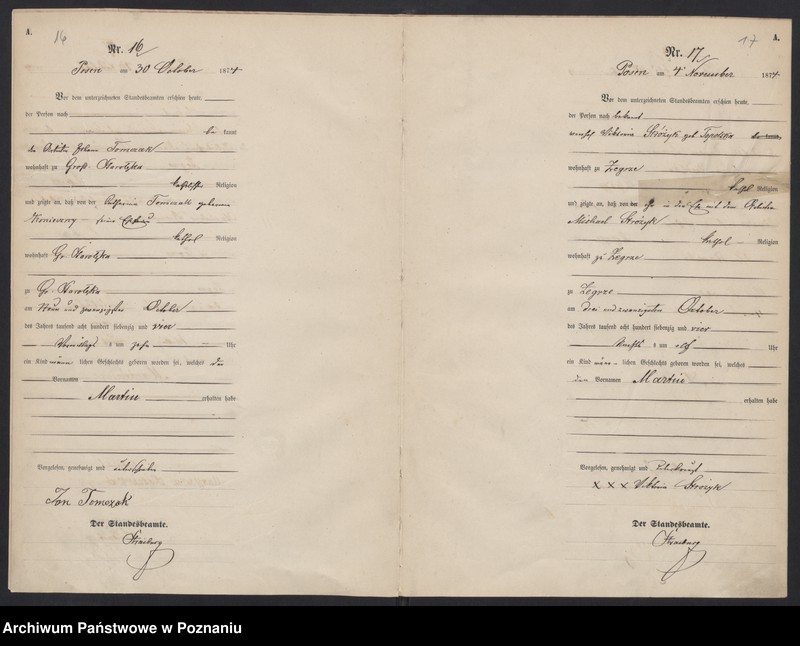 A.
16
Nr. 16
Posen am 30 October 1874
Vor dem unterzeichneten Standesbeamten erschien heute,
der Person nach
be kannt
der Johann Tomczak
wohnhaft zu Groß Starolęka
katholischer Religion
und zeigte an, daß von der Tomczak geborene
seine Ehefrau
kathol Religion
wohnhaft Gr. Starolęka
zu Gr. Starolęka
am Neun und zwanzigsten October
des Jahres tausend acht hundert siebenzig und vier
Vormittags um zehn Uhr
ein Kind männ lichen Geschlechts geboren worden sei, welches den
Vornamen
Martin erhalten habe
Vorgelesen, genehmigt und unterschrieben
Jan Tomczak
Der Standesbeamte.
17
A.
Nr. 17
Posen am 4 November 1874
Vor dem unterzeichneten Standesbeamten erschien heute,
der Person nach bekannt
Viktoria Stróżyk geb
wohnhaft zu Zegrze
kathol Religion
und zeigte an, daß von ihr in der Ehe mit dem Arbeiter
Michael Stróżyk
kathol Religion
wohnhaft zu Zegrze
zu Zegrze
am drei und zwanzigsten October
des Jahres tausend acht hundert siebenzig und vier
Nachts um elf Uhr
ein Kind männ lichen Geschlechts geboren worden sei, welches
den Vornamen Martin
erhalten habe
Vorgelesen, genehmigt und unterkreuzt
X X X Viktoria Stróżyk
Der Standesbeamte.
Archiwum Państwowe w Poznaniu